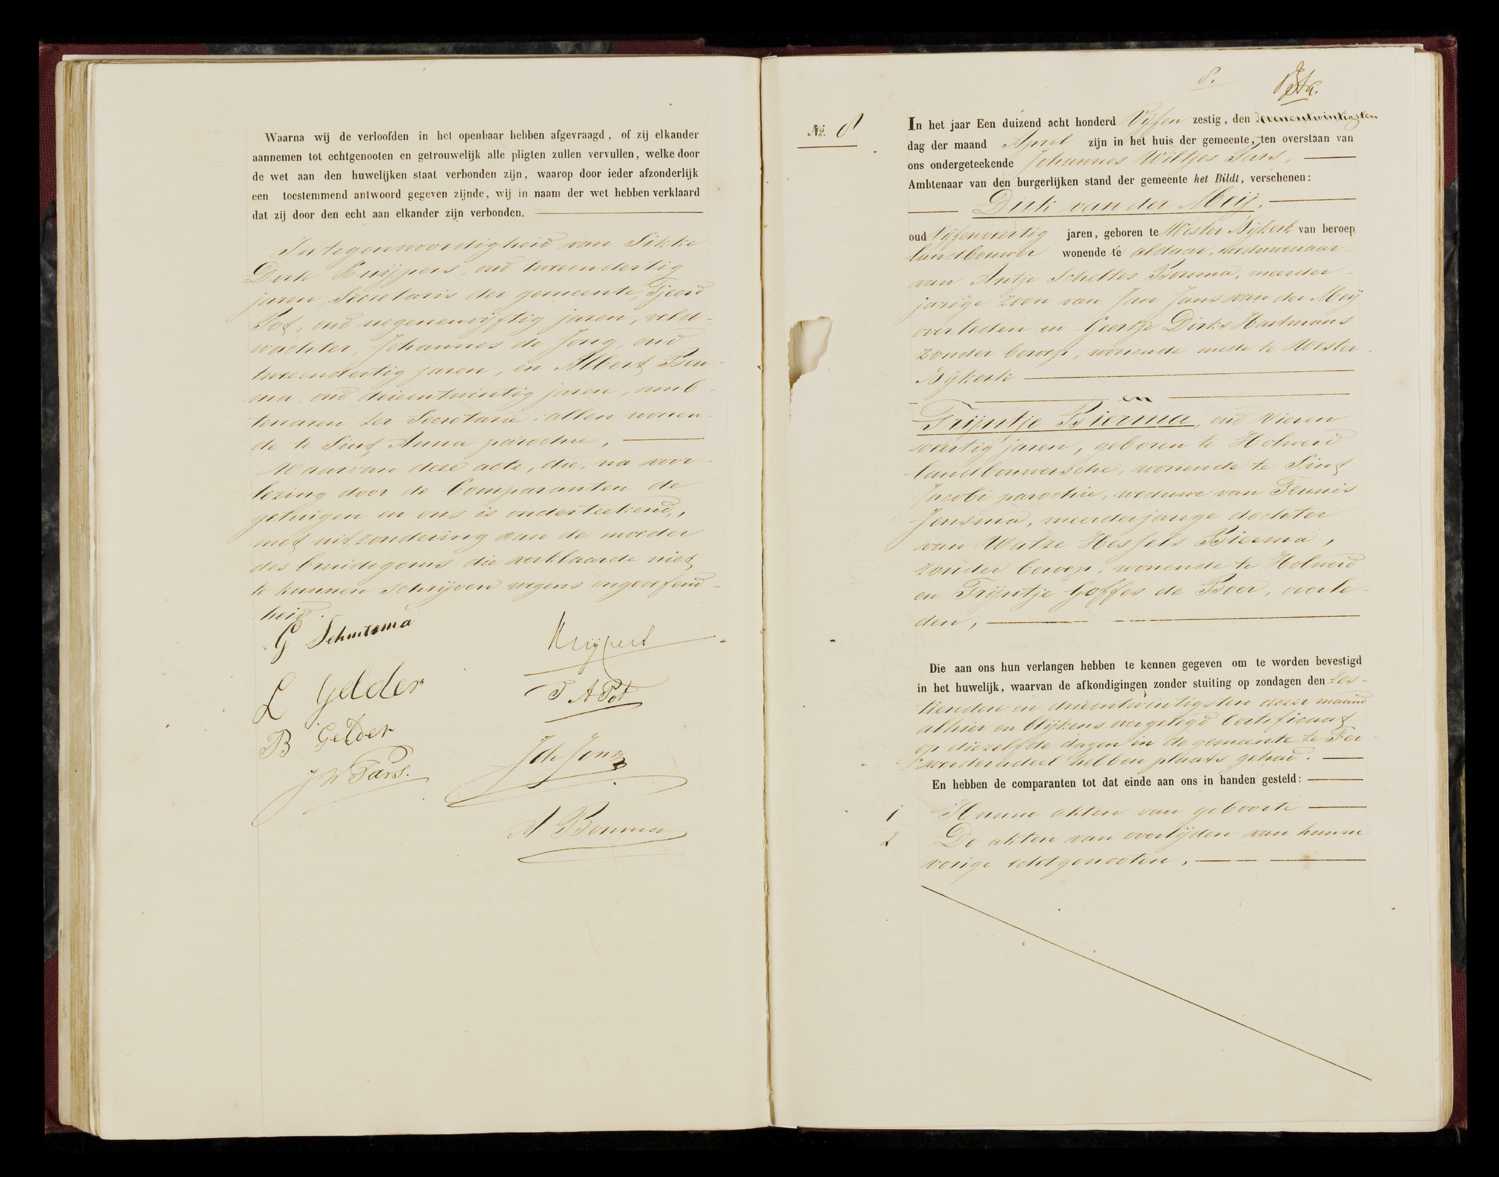 Waarna wij de verloofden in het openbaar hebben afgevraagd, of zij elkander
aannemen tot echtgenooten en getrouwelijk alle pligten zullen vervullen, welke door
de wet aan den huwelijken staat verbonden zijn, waarop door ieder afzonderlijk
een toestemmend antwoord gegeven zijnde, wij in naam der wet hebben verklaard
dat zij door den echt aan elkander zijn verbonden.
In tegenwoordigheid van Sikke
Dirk Kuijpers, oud tweendertig
jaren, Secretaris der gemeente, Tjeerd
Pot, oud negenenvijftig jaren, veld-
wachter, Johannes de Jong, oud
tweendertig jaren, en Albert Bou-
ma, oud drieentwintig jaren, amb-
tenaren ter Secretarie, allen wonen-
de te Sint Anna parochie,
Waarvan deze acte, die, na voor-
lezing door de Comparanten de
getuigen en ons is onderteekend,
met uitzondering van de moeder
des bruidegoms die verklaarde niet
te kunnen schrijven wegens ongeoefend-
heid.
G Schuitema
Kuijpers
L Gelder
T A Pot
B Gelder
Joh Jong
J W Sars.
A Bouma
8.
No. 8
In het jaar Een duizend acht honderd Vijfen zestig, den zevenentwintigsten
dag der maand April zijn in het huis der gemeente, ten overstaan van
ons ondergeteekende Johannes Willems Sars,
Ambtenaar van den burgerlijken stand der gemeente het Bildt, verschenen:
Dirk van der Meij,
oud vijfenveertig jaren, geboren te Wester Nijkerk van beroep
landbouwer wonende te aldaar, weduwenaar
van Antje Scheltes Bouma, meerder-
jarige zoon van Jan Jans van der Meij
overleden en Geertje Dirks Hartmans
zonder beroep, wonende mede te Wester
Nijkerk
en
Trijntje Bierma, oud vieren
veertig jaren, geboren te Holwerd
landbouwersche, wonende te Sint
Jacobi parochie, weduwe van Teunis
Jensma, meerderjarige dochter
van Wietze Hessels Bierma,
zonder beroep, wonende te Holwerd
en Trijntje Goffes de Boer, overle-
den,
Die aan ons hun verlangen hebben te kennen gegeven om te worden bevestigd
in het huwelijk, waarvan de afkondigingen zonder stuiting op zondagen den zes-
tienden en drieentwintigsten dezer maand
alhier en blijkens overgelegd Certificaat
op diezelfde dagen in de gemeente te Fer-
werderadeel hebben plaats gehad.
En hebben de comparanten tot dat einde aan ons in handen gesteld:
1 Hunne akten van geboorte
2 De akten van overlijden van hunne
vorige echtgenooten,